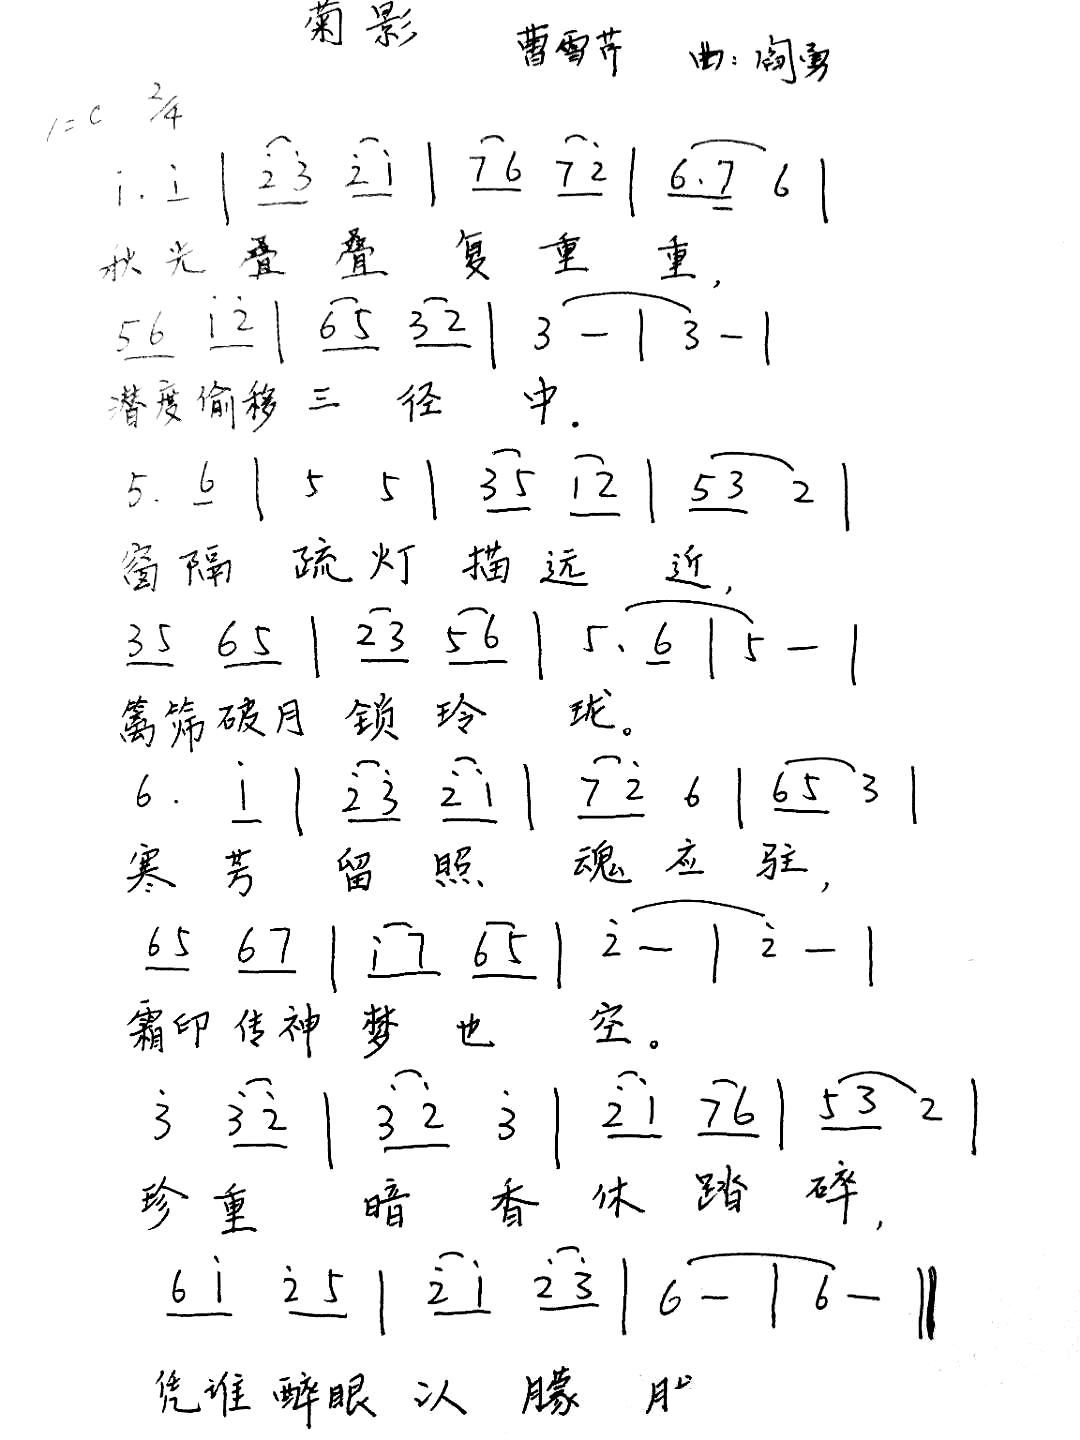 菊影
曹雪芹 曲:阎勇
1=C 2/4
i. i | 2̇3̇ 2̇i | 76 72̇ | 6.7 6 |
秋光叠叠复重重,
56 i2̇ | 65 32 | 3 - | 3 - |
潜度偷移三径中.
5. 6 | 5 5 | 35 12 | 53 2 |
窗隔疏灯描远近,
35 65 | 23 56 | 5. 6 | 5 - |
篱筛破月锁玲珑。
6. i | 2̇3̇ 2̇i | 72̇ 6 | 65 3 |
寒芳留照魂应驻,
65 67 | i7 65 | 2̇ - | 2̇ - |
霜印传神梦也空。
3̇ 3̇2̇ | 3̇2̇ 3̇ | 2̇i 76 | 53 2 |
珍重暗香休踏碎,
6i 2̇5 | 2̇i 2̇3̇ | 6 - | 6 - ‖
凭谁醉眼认朦